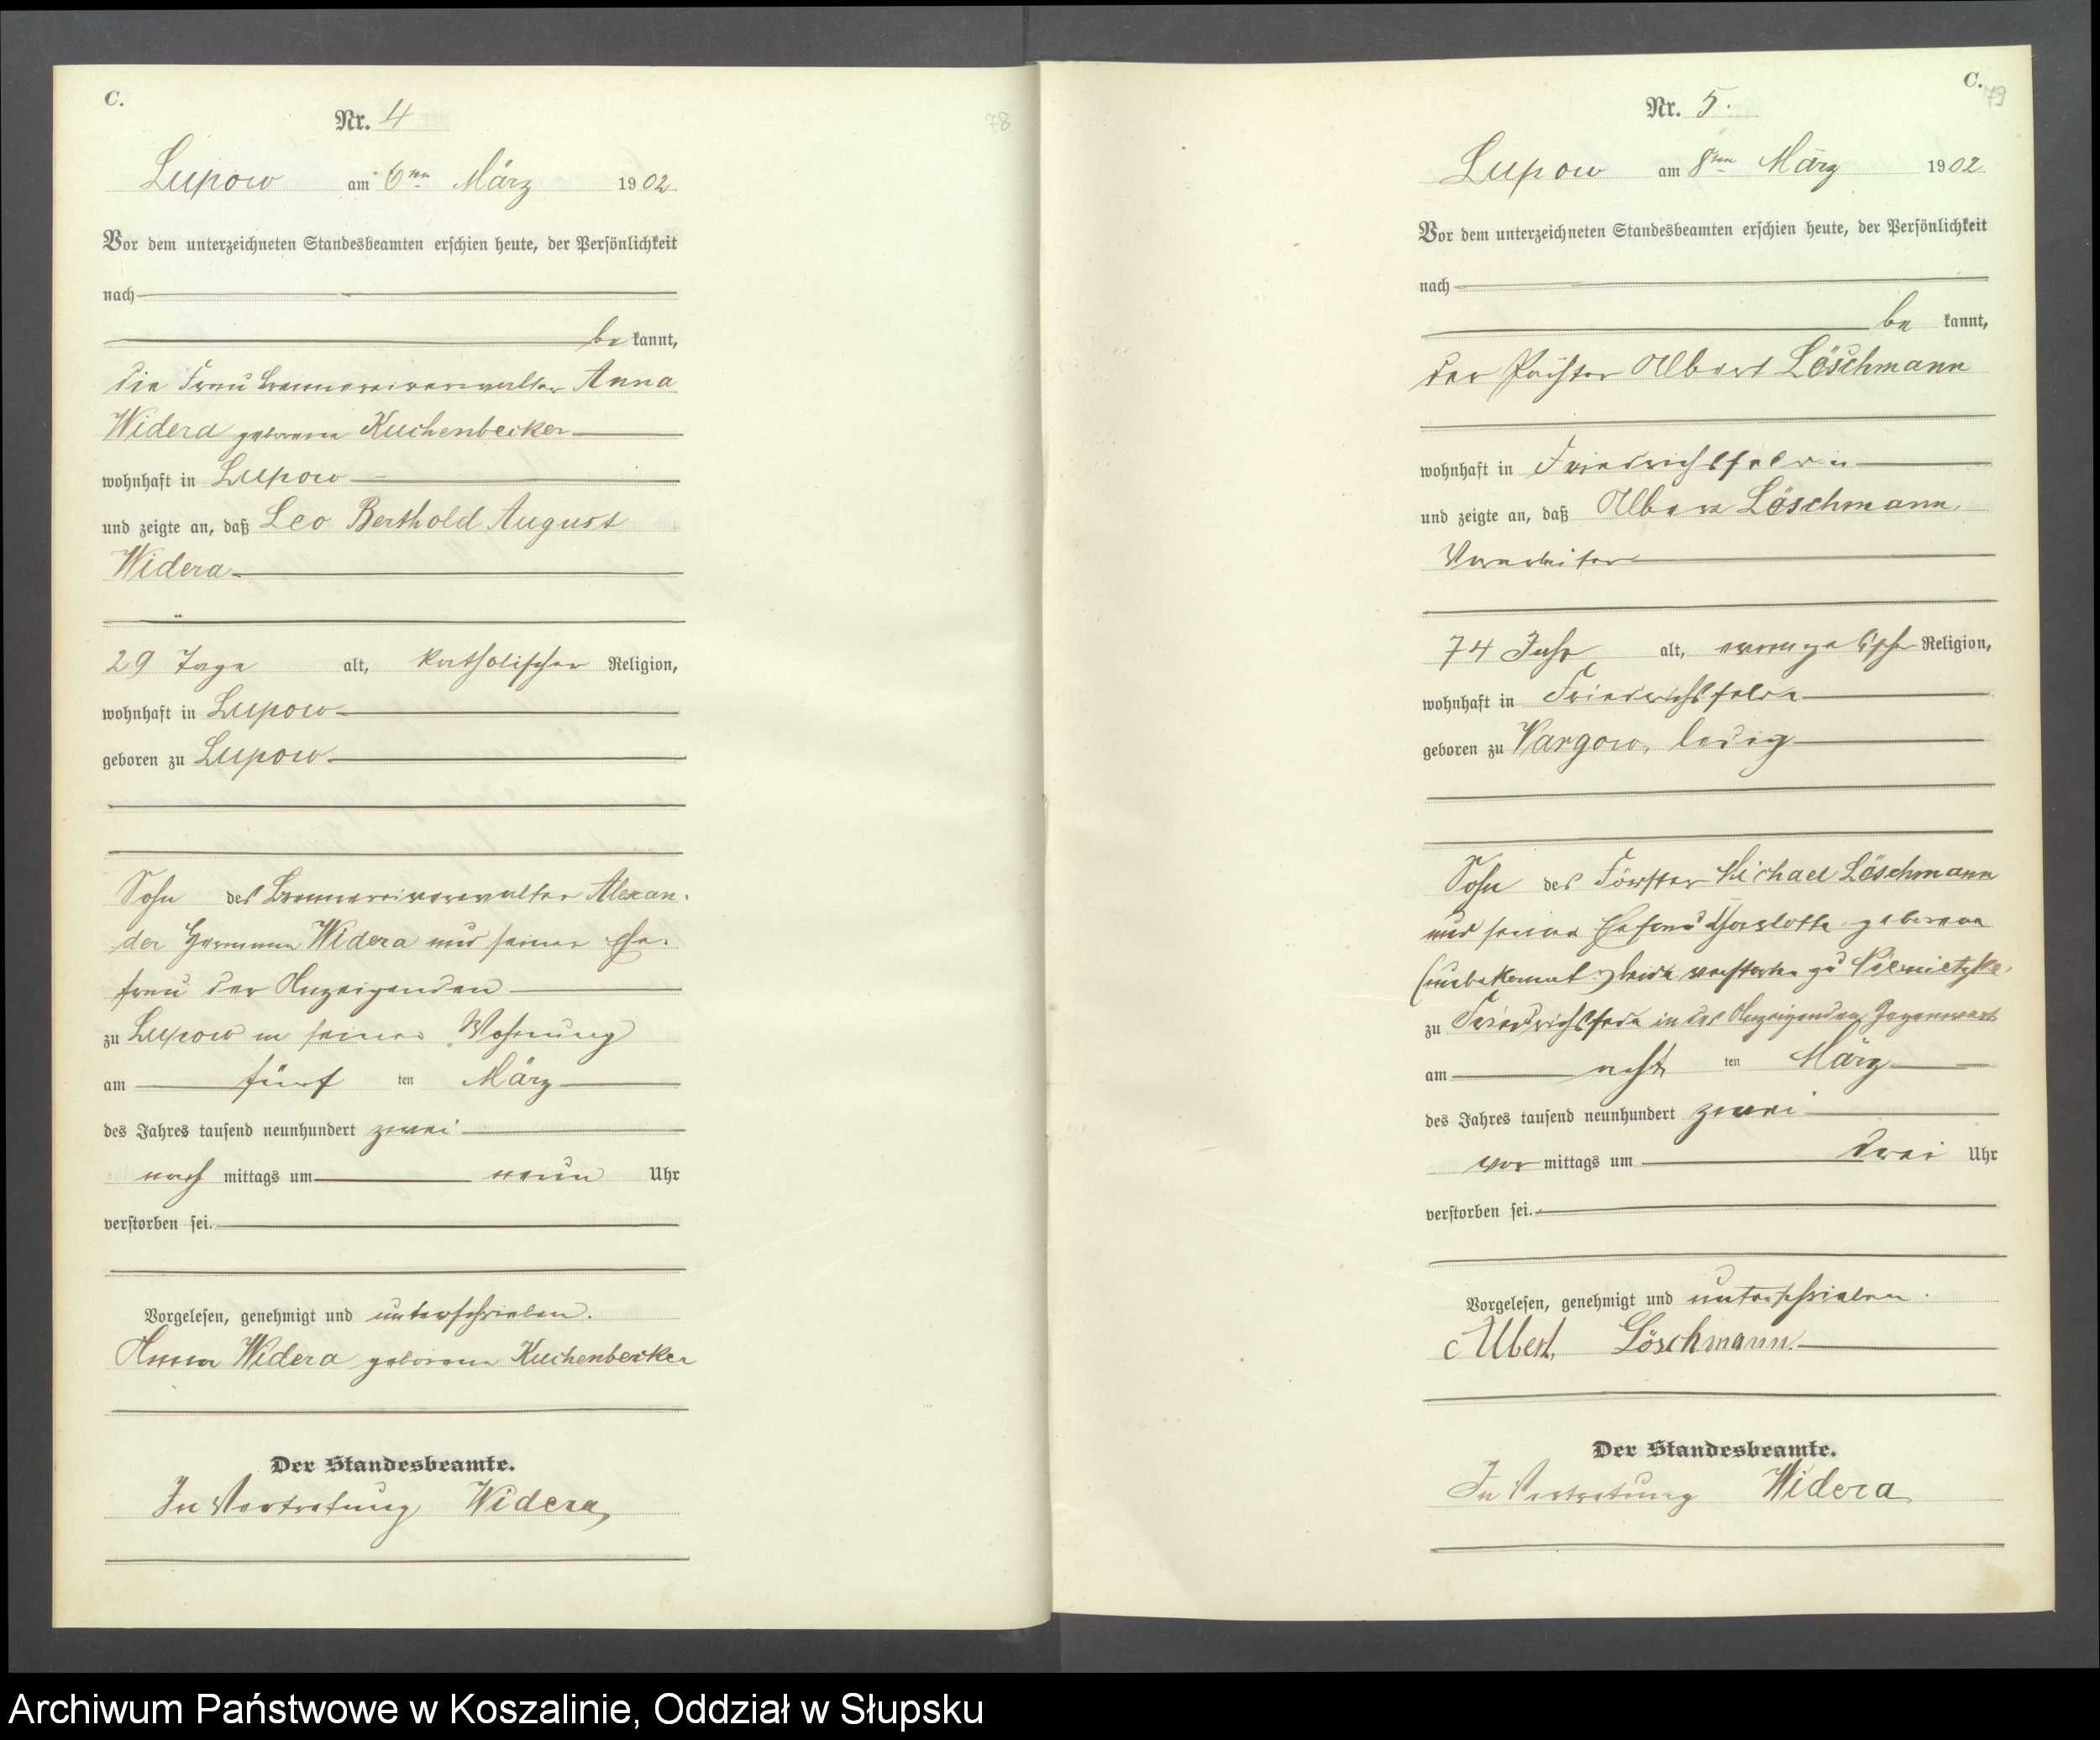 C.
Nr. 4
78
Lupow am 6ten März 1902
Vor dem unterzeichneten Standesbeamten erschien heute, der Persönlichkeit
nach
be kannt,
die Frau Brennereiverwalter Anna
Widera geborene Kuchenbecker
wohnhaft in Lupow
und zeigte an, daß Leo Berthold August
Widera
29 Tage alt, katholischer Religion,
wohnhaft in Lupow
geboren zu Lupow
Sohn des Brennereiverwalter Alexan-
der Hermann Widera und seiner Ehe-
frau der Anzeigenden
zu Lupow in seiner Wohnung
am fünf ten März
des Jahres tausend neunhundert zwei
nach mittags um neun Uhr
verstorben sei.
Vorgelesen, genehmigt und unterschrieben.
Anna Widera geborene Kuchenbecker
Der Standesbeamte.
In Vertretung Widera
C.
79
Nr. 5.
Lupow am 8ten März 1902
Vor dem unterzeichneten Standesbeamten erschien heute, der Persönlichkeit
nach
be kannt,
der Albert Löschmann
wohnhaft in Friedrichsfelde
und zeigte an, daß Albert Löschmann,
Vorarbeiter
74 Jahr alt, evangelischer Religion,
wohnhaft in Friedrichsfelde
geboren zu Vargow, ledig
Sohn des Förster Michael Löschmann
und seiner Ehefrau Charlotte geborene
(unbekannt) beide verstorben zu
zu Friedrichsfelde in des Anzeigenden Gegenwart
am acht ten März
des Jahres tausend neunhundert zwei
vor mittags um drei Uhr
verstorben sei.
Vorgelesen, genehmigt und unterschrieben.
Albert Löschmann.
Der Standesbeamte.
In Vertretung Widera
Archiwum Państwowe w Koszalinie, Oddział w Słupsku